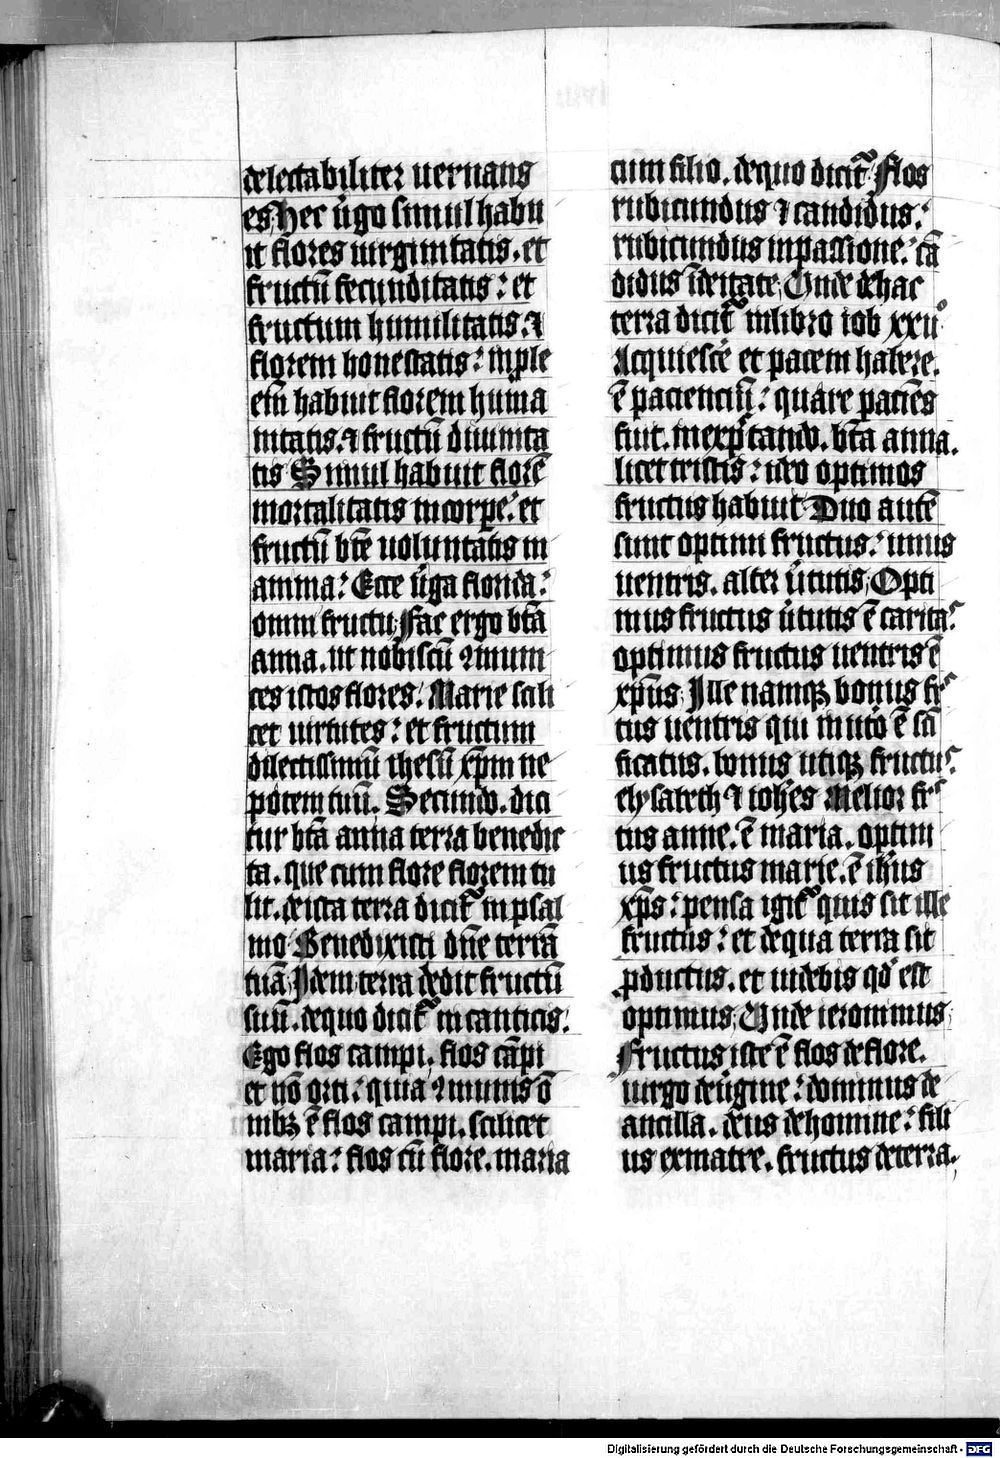 delectabiliter uernans
es, Hec ũgo simul habu
it flores uirginitatis. et
fructũ fecunditatis: et
fructum humilitatis. ⁊
florem honestatis: in ple
em̄ habuit florem huma
nitatis. ⁊ fructũ diuinita
tis Simul habuit florẽ
mortalitatis in corpe: et
fructũ bt̃e uoluntatis in
anima: Ecce ũga florida:
omni fructu, Fac ergo bt̃a
anna. ut nobiscũ ꝯmuni
ces istos flores. Marie scili
cet uirtutes: et fructum
dilectissimũ ihesũ xp̃m ne
potem tuũ. Secundo. dici
tur bt̃a anna terra benedic
ta. que cum flore florem tu
lit. de ista terra dicit᷑ in psal
mo Benedixisti dñe terrã
tuã, Idem terra dedit fructũ
suũ. de quo dicit᷑ in canticis.
Ego flos campi, flos cãpi
et nõ orti: quia ꝯmunis õ
nibꝫ ẽ flos campi. scilicet
maria: flos cũ flore. maria
cum filio. de quo dicit᷑ flos
rubicundus ⁊ candidus:
rubicundus in passione: cã
didus ĩ deitate, Unde de hac
terra dicit᷑ in libro iob xxii°
Acquiesce et pacem habere.
ẽ pacienciũ: quare paciẽs
fuit. inexp̃tando. bt̃a anna.
licet tristis: ideo optimos
fructus habuit Duo autẽ
sunt optimi fructus: unus
uentris. alter ũtutis, Opti
mus fructus ũtutis ẽ caritas
optimus fructus uentris ẽ
xp̃us, Ille namqꝫ bonus fr
tus uentris qui in utero ẽ scĩ
ficatus. bonus utiqꝫ fructus
elysabeth ⁊ ioh̃es Melior fr
tus anne. ẽ maria. optim
us fructus marie. ẽ ih̃us
xp̃s: pensa igit᷑ quis sit ille
fructus: et de qua terra sit
ꝓductus. et uidebis qđ est
optimus, Unde ieronimus,
Fructus iste ẽ flos de flore.
uirgo de ũgine: dominus de
ancilla. deus de homine: fili
us ex matre. fructus de terra.
Digitalisierung gefördert durch die Deutsche Forschungsgemeinschaft - DFG